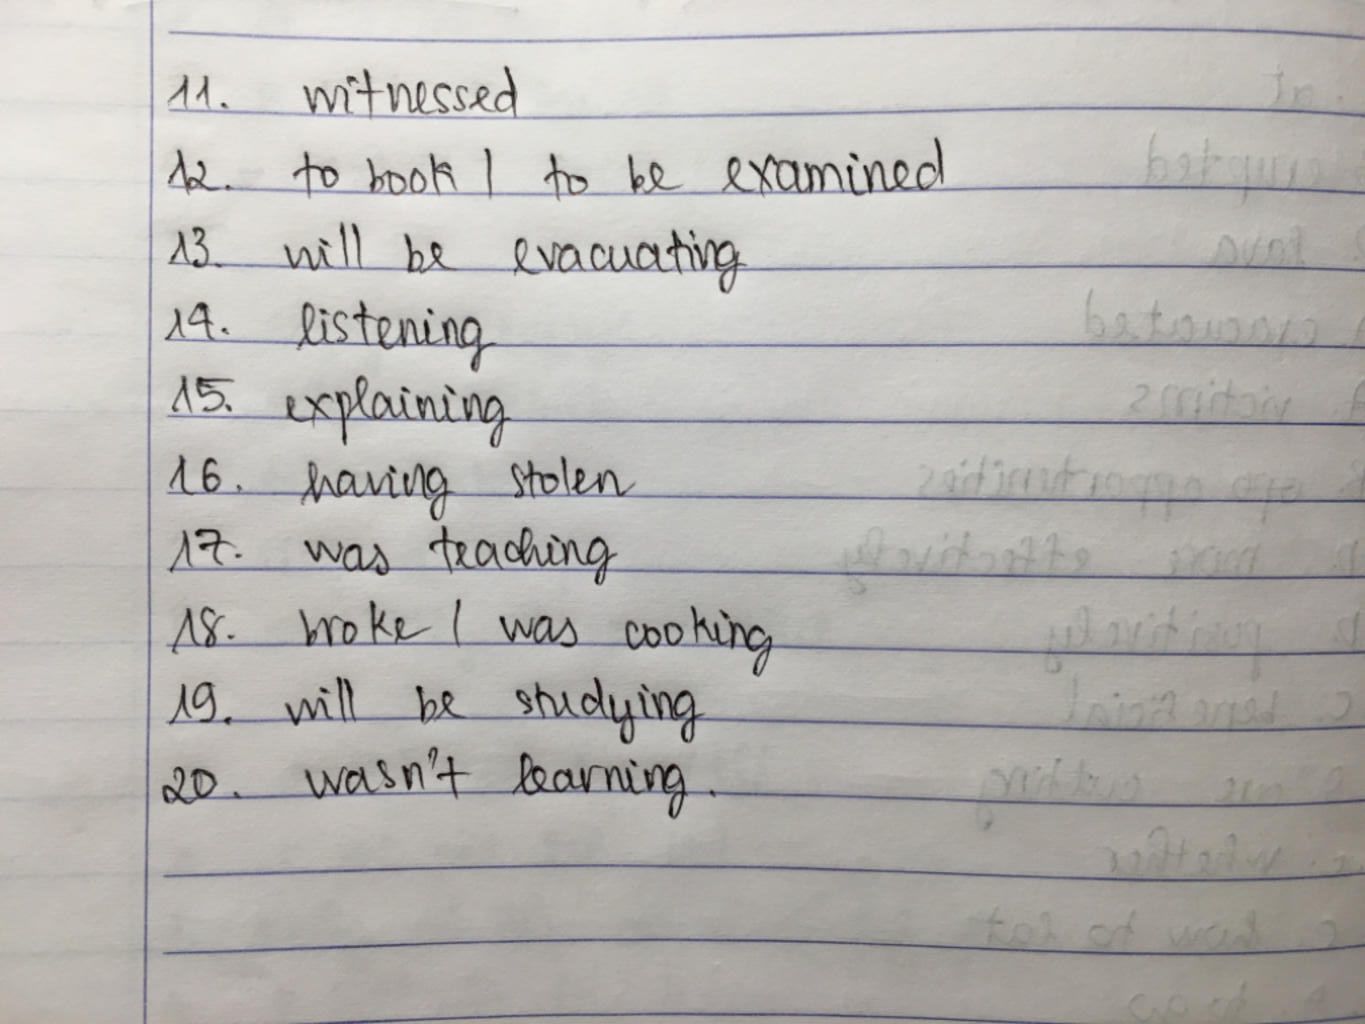 11. witnessed
12. to book / to be examined
13. will be evacuating
14. listening
15. explaining
16. having stolen
17. was teaching
18. broke / was cooking
19. will be studying
20. wasn't learning.